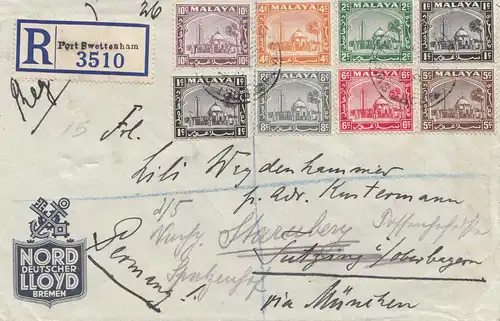 26
R
Port Swettenham
3510
MALAYA
10c 10c
MALAYA
4c 4c
MALAYA
2c 2c
MALAYA
1c 1c
MALAYA
1c 1c
MALAYA
8c 8c
MALAYA
6c 6c
MALAYA
5c 5c
Reg
15
Frl.
Lili Weydenhammer
p. adr. Kustermann
Starnberg
Tutzing Oberbayern
via München
Germany
NORD
DEUTSCHER
LLOYD
BREMEN